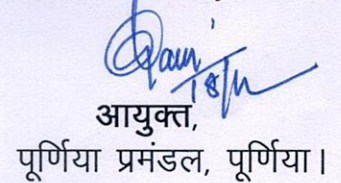 18/11
आयुक्त,
पूर्णिया प्रमंडल, पूर्णिया।